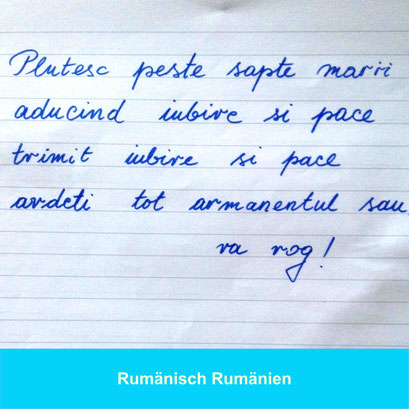 Plutesc peste sapte marii
aducind iubire si pace
trimit iubire si pace
ardeti tot armanentul sau
va rog!
Rumänisch Rumänien